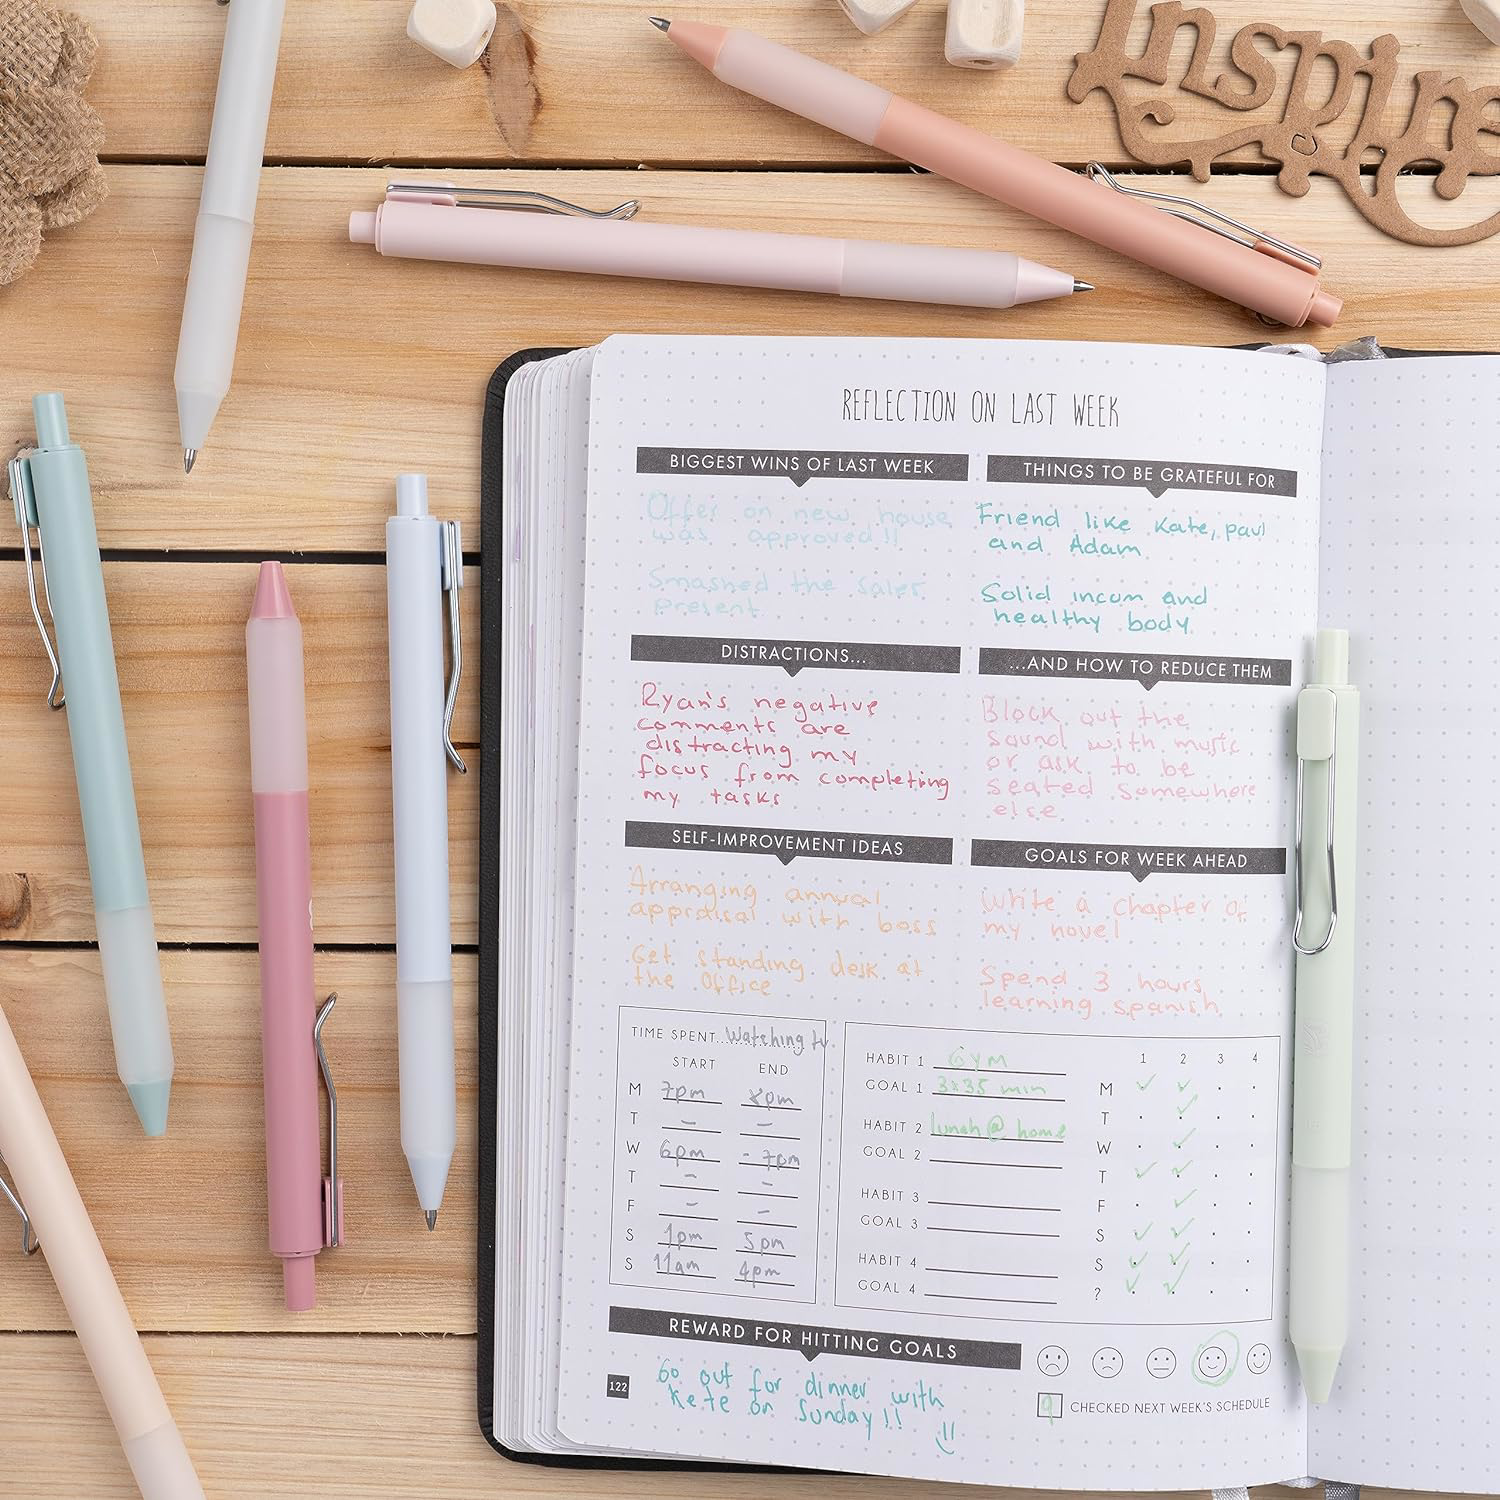 Inspire
REFLECTION ON LAST WEEK
BIGGEST WINS OF LAST WEEK
Offer on new house
was approved!!
Smashed the sales
present
THINGS TO BE GRATEFUL FOR
Friend like Kate, paul
and Adam
Solid incom and
healthy body
DISTRACTIONS...
Ryan's negative
comments are
distracting my
focus from completing
my tasks
...AND HOW TO REDUCE THEM
Block out the
sound with music
or ask to be
seated somewhere
else
SELF-IMPROVEMENT IDEAS
Arranging annual
appraisal with boss
Get standing desk at
the office
GOALS FOR WEEK AHEAD
Write a chapter of
my novel
Spend 3 hours
learning spanish
TIME SPENT... Watching tv
START END
M 7pm 8pm
T – –
W 6pm - 7pm
T – –
F – –
S 1pm 5pm
S 11am 4pm
HABIT 1 Gym
GOAL 1 3x35 min
HABIT 2 lunch @ home
GOAL 2
HABIT 3
GOAL 3
HABIT 4
GOAL 4
1 2 3 4
M ✓ ✓
T ✓
W ✓
T ✓ ✓
F ✓
S ✓ ✓
S ✓ ✓
? ✓ ✓
REWARD FOR HITTING GOALS
Go out for dinner with
Kete on Sunday!!
122
CHECKED NEXT WEEK'S SCHEDULE